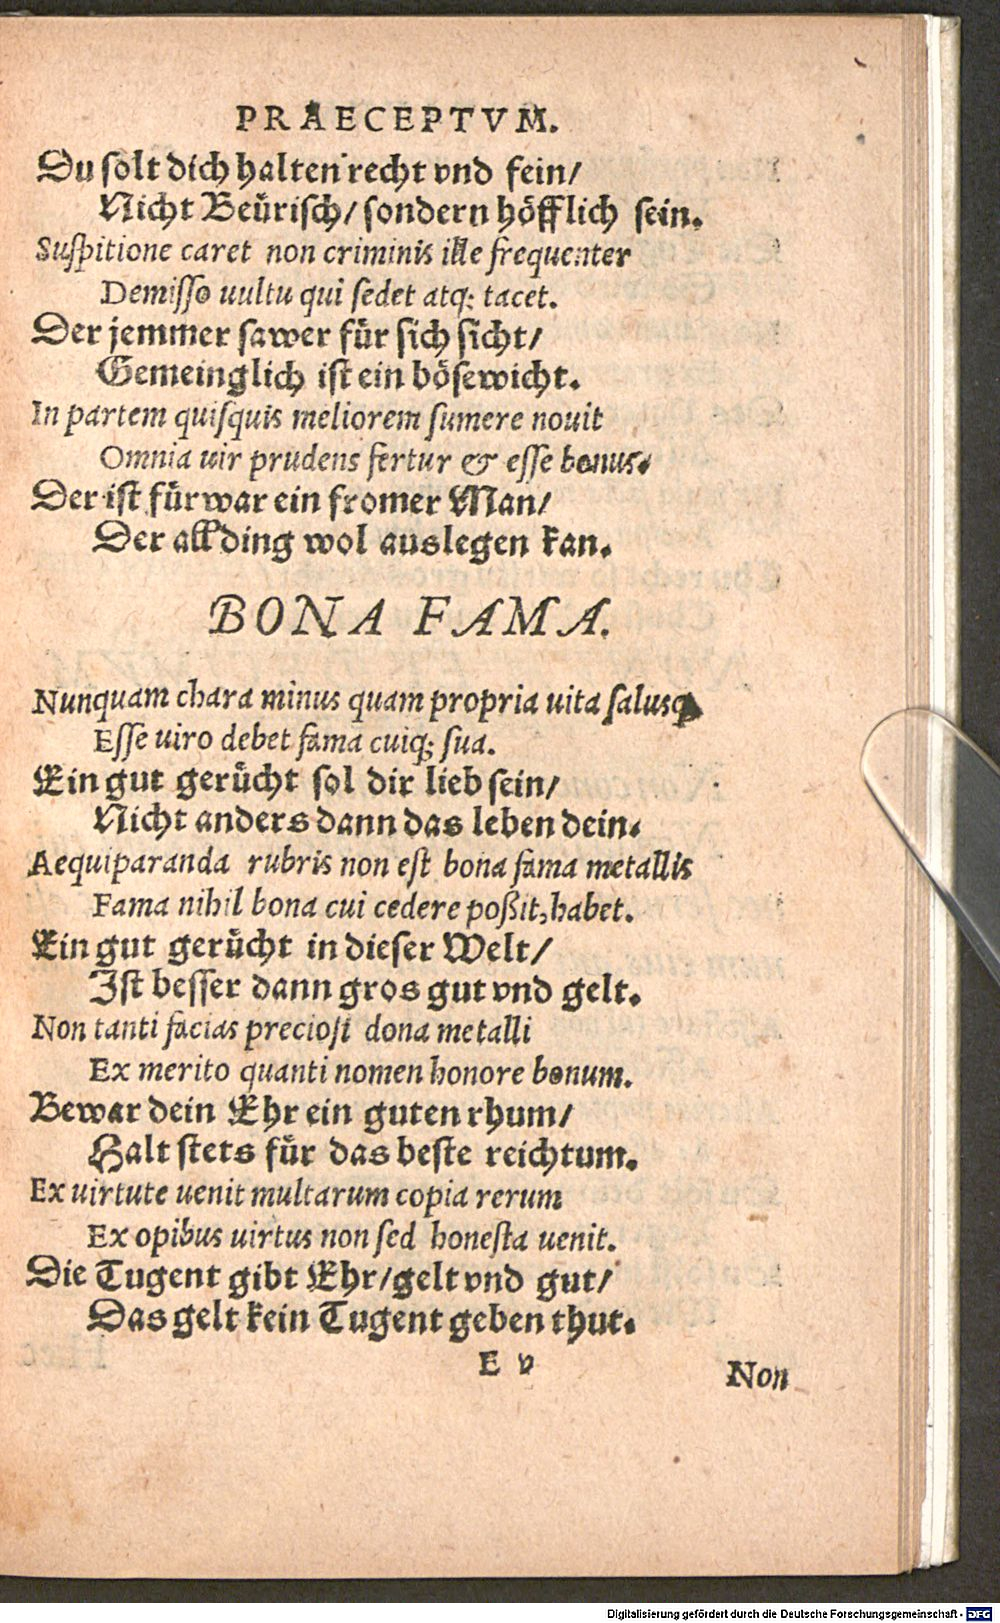 PRAECEPTVM.
Du solt dich halten recht vnd fein/
Nicht Beürisch/ sondern höfflich sein.
Suſpitione caret non criminis ille frequenter
Demiſſo uultu qui ſedet atq; tacet.
Der jemmer sawer für sich sicht/
Gemeinglich ist ein bösewicht.
In partem quiſquis meliorem ſumere nouit
Omnia uir prudens fertur & eſſe bonus.
Der ist fürwar ein fromer Man/
Der all ding wol auslegen kan.
BONA FAMA.
Nunquam chara minus quam propria uita ſalusq;
Eſſe uiro debet fama cuiq; ſua.
Ein gut gerücht sol dir lieb sein/
Nicht anders dann das leben dein.
Aequiparanda rubris non eſt bona fama metallis
Fama nihil bona cui cedere poßit, habet.
Ein gut gerücht in dieser Welt/
Ist besser dann gros gut vnd gelt.
Non tanti facias precioſi dona metalli
Ex merito quanti nomen honore bonum.
Bewar dein Ehr ein guten rhum/
Halt stets für das beste reichtum.
Ex uirtute uenit multarum copia rerum
Ex opibus uirtus non ſed honeſta uenit.
Die Tugent gibt Ehr/gelt vnd gut/
Das gelt kein Tugent geben thut.
E v
Non
Digitalisierung gefördert durch die Deutsche Forschungsgemeinschaft - DFG